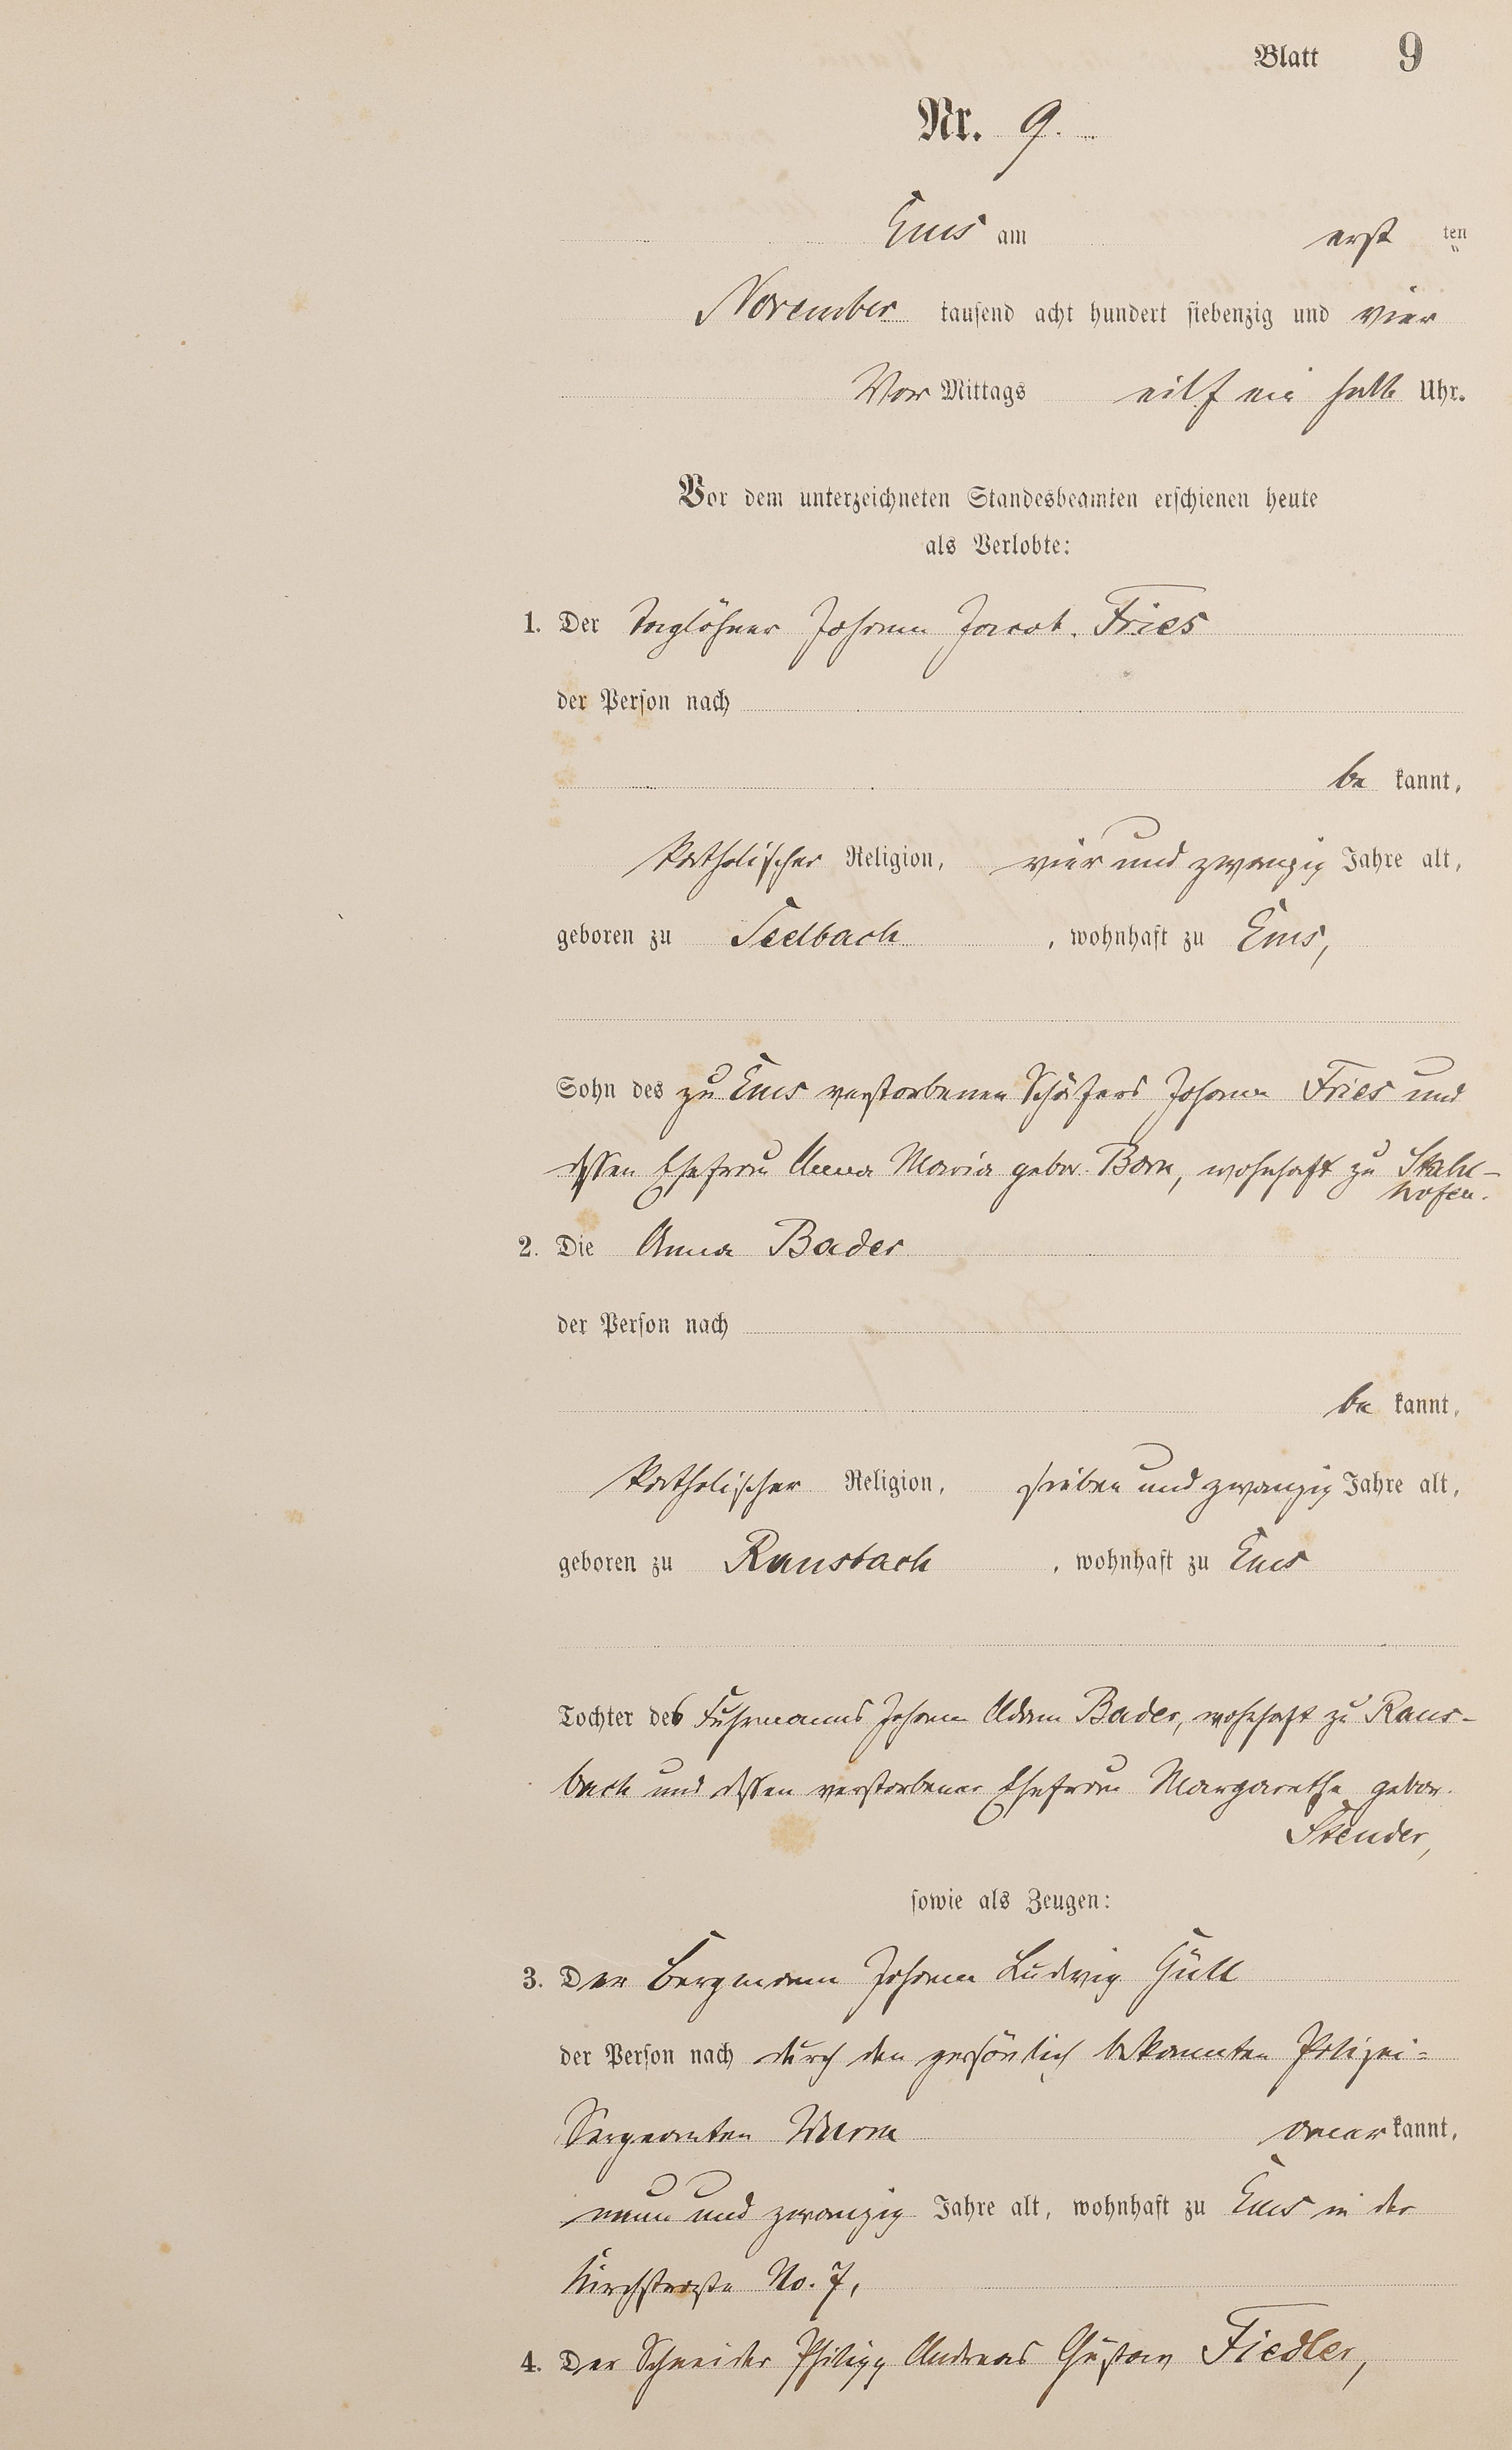 Blatt 9
Nr. 9.
Ems am erst ten
November tausend acht hundert siebenzig und vier
Vor Mittags eilf ein halb Uhr.
Vor dem unterzeichneten Standesbeamten erschienen heute
als Verlobte:
1. Der Taglöhner Johann Jacob Fries
der Person nach
be kannt,
katholischer Religion, vier und zwanzig Jahre alt,
geboren zu Seelbach, wohnhaft zu Ems,
Sohn des zu Ems verstorbenen Schäfers Johann Fries und
dessen Ehefrau Anna Maria gebor. Born, wohnhaft zu Stahl-
hofen.
2. Die Anna Bader
der Person nach
be kannt,
katholischer Religion, sieben und zwanzig Jahre alt,
geboren zu Ransbach, wohnhaft zu Ems
Tochter des Fuhrmanns Johann Adam Bader, wohnhaft zu Rans-
bach und dessen verstorbener Ehefrau Margarethe gebor.
Stender,
sowie als Zeugen:
3. Der Bergmann Johann Ludwig Güll
der Person nach durch den persönlich bekannten Polizei-
Sergeanten Wurm anerkannt,
neun und zwanzig Jahre alt, wohnhaft zu Ems in der
Kirchstraße No. 7,
4. Der Schneider Philipp Andreas Gustav Fiedler,